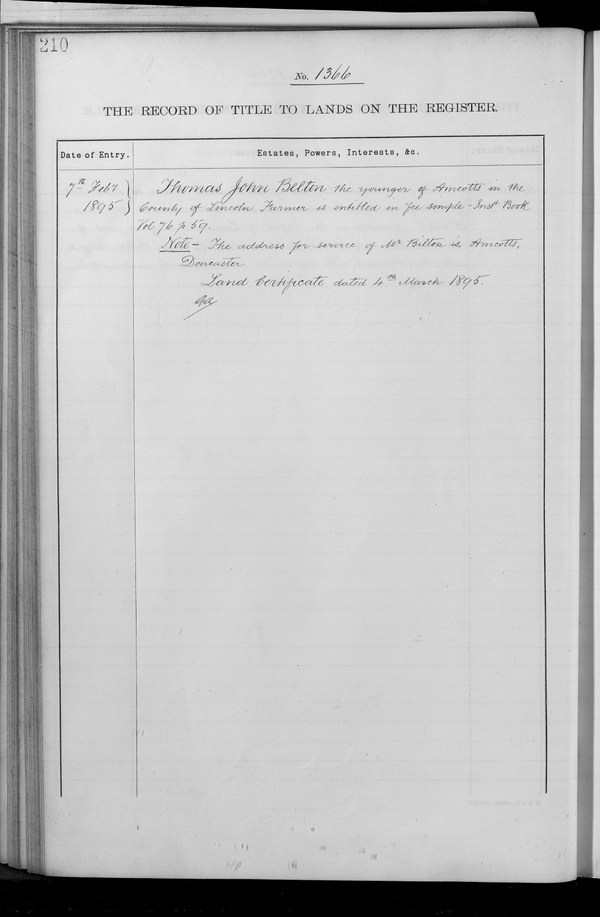 210
No. 1366
THE RECORD OF TITLE TO LANDS ON THE REGISTER.
Date of Entry.
Estates, Powers, Interests, &c.
7th Feby
1895
Thomas John Belton the younger of Amcotts in the
County of Lincoln Farmer is entitled in fee simple - Inst Book
Vol 76 p 59.
Note - The address for service of Mr Belton is Amcotts,
Doncaster
Land Certificate dated 4th March 1895.